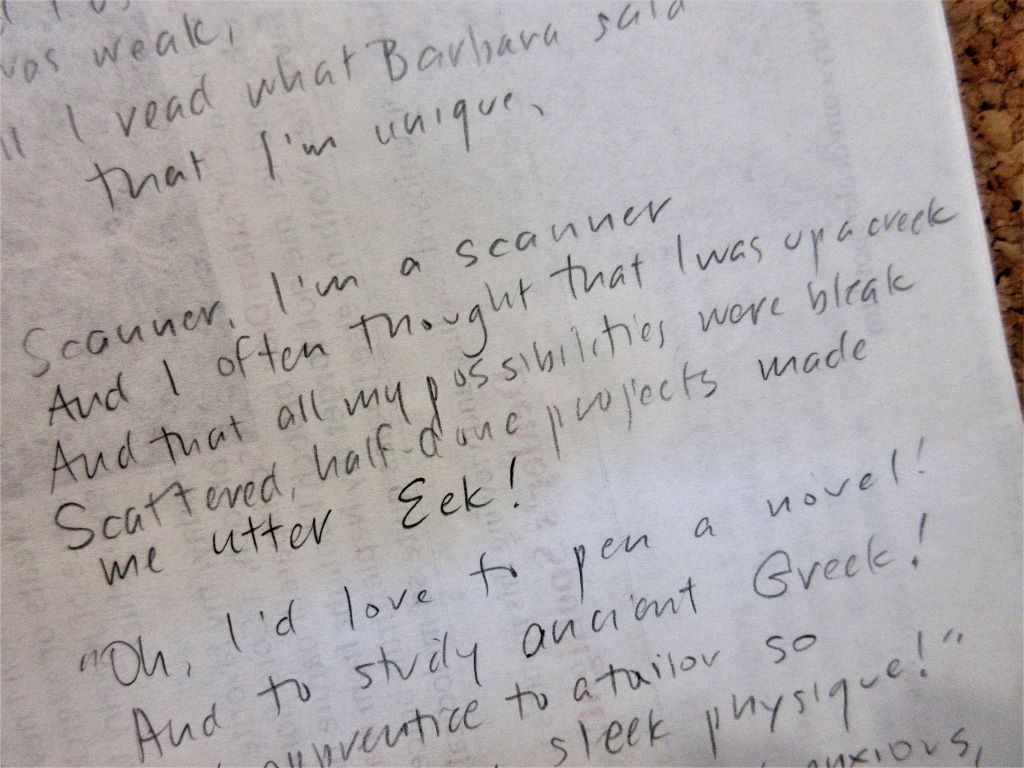 was weak,
I read what Barbara said
that I'm unique.
Scanner, I'm a scanner
And I often thought that I was up a creek
And that all my possibilities were bleak
Scattered, half-done projects made
me utter Eek!
"Oh, I'd love to pen a novel!
And to study ancient Greek!
apprentice to a tailor so
sleek physique!"
anxious,